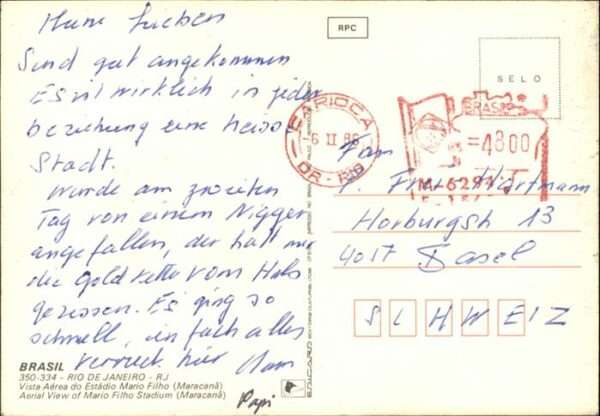 Meine Lieben
Sind gut angekommen
Es ist wirklich in jeder
beziehung eine heisse
Stadt.
Wurde am zweiten
Tag von einem Nigger
angefallen, der hatt mir
die Goldkette vom Hals
gerissen. Es ging so
schnell, einfach alles
verrückt hier
Papi
BRASIL
350-334 - RIO DE JANEIRO - RJ
Vista Aérea do Estádio Mario Filho (Maracanã)
Aerial View of Mario Filho Stadium (Maracanã)
RPC
SELO
CARIOCA
-6 II 86
DR-RJ
BRASIL
=4800
Fam
Hartmann
Horburgstr 13
4017 Basel
SCHWEIZ